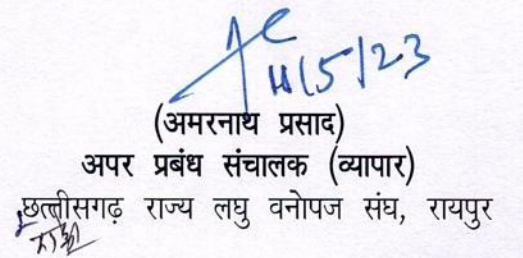 11/5/23
(अमरनाथ प्रसाद)
अपर प्रबंध संचालक (व्यापार)
छत्तीसगढ़ राज्य लघु वनोपज संघ, रायपुर